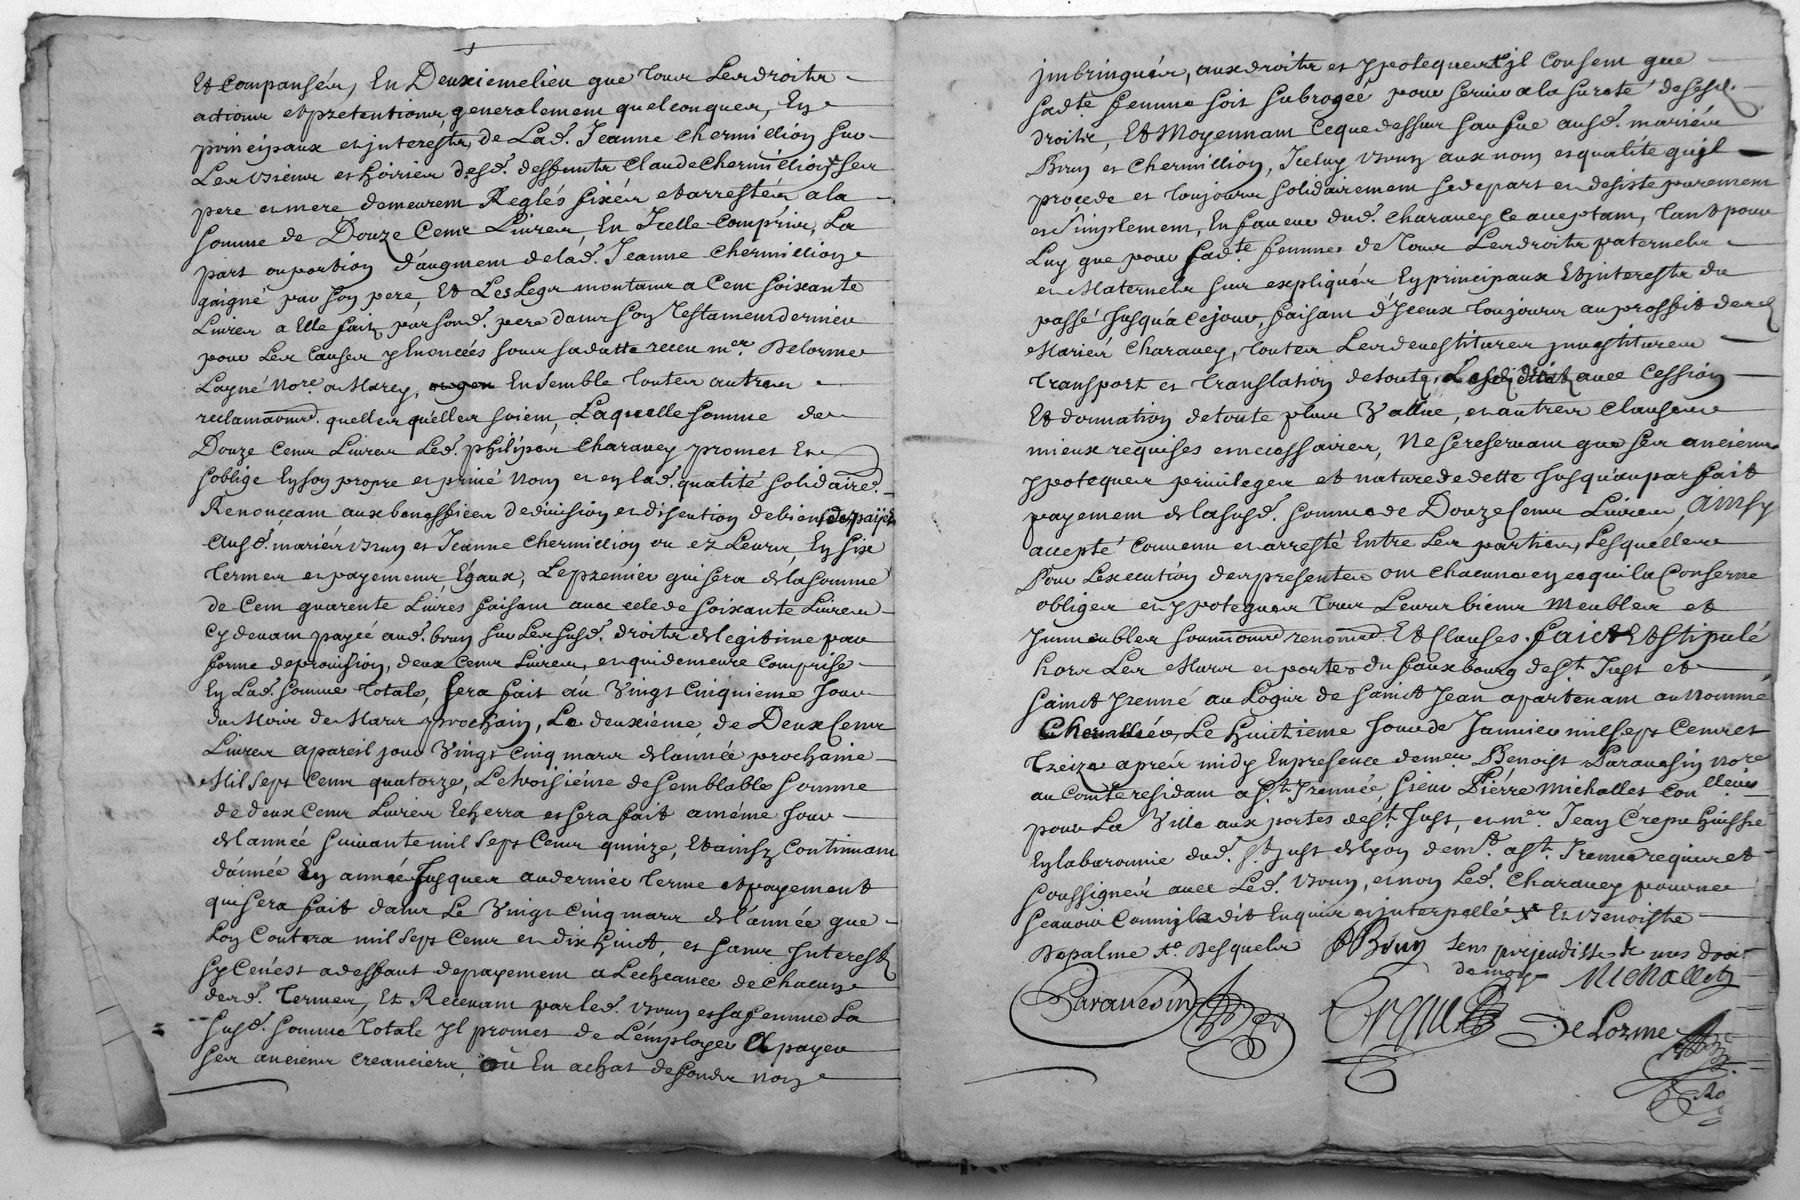 Et Compansés, En Deuxiemelieu que tous Lesdroits
actions et pretentions generalement quelconques, En
principaux et jnterests, de Lad.e Jeanne chermillion sur
Les biens et hoiries desd. deffunts Claude chermillion ses
pere et mere demeurent Reglés fixés et arrestés a la
somme de Douze Cens Livres, En Icelle Comprise, La
part ou portion d'augment de lad. Jeanne Chermillion
gaigné par son pere, Et Les Legs montans a Cent soixante
Livres a Elle fait par sond. pere dans son Testament dernier
pour Les Causes y Enoncées sous sa datte receu m.er Delorme
Layné No.re a Marcy, Ensemble toutes autres
reclama.ons quelles quelles soient, Laquelle somme de
Douze Cens Livres Led. philipes Charavey promet Et
soblige En son propre et privé nom et en lad. qualité solidaire
Renonceant aux beneffices de division et discution de biens de payer
Ausd. mariés brun et Jeanne Chermillion ou ez Leurs, En six
termes et payemens Egaux, Le premier qui sera de la somme
de Cent quarente Livres faisant avec celle de soixante Livres
Cy devant payée aud. brun sur Les susd. droits de legitime par
forme de provision, deux Cens Livres, et qui demeure Comprise
En Lad. somme totale, sera fait au Vingt Cinquieme Jour
du Mois de Mars prochain, Le deuxième de Deux Cens
Livres apareil jour Vingt cinq mars de l'année prochaine
Mil sept Cens quatorze, Le troisiéme de semblable somme
de deux Cens Livres Echerra et sera fait a méme Jour
de lannée suivante mil sept Cens quinze, Et ainsy Continuant
dánnée En année Jusques au dernier terme et payement
qui sera fait dans Le Vingt cinq mars de l'année que
Lon Contera mil sept Cens et dix huict, et sans Interest
sy Ce n'est a deffaut de payement a L'echeance de Chacun
desd. termes, Et Recevant par led. brun et sa femme La
susd. somme totale Il promet de L'employer A payer
ses anciens creanciers, où En achat de fonds non
jmbrinqués, aux droits et ypoteques desq.ls Jl Consent que
sad.te femme soit subrogée pour servir a la sureté de sesd.
droits, Et Moyennant Ceque dessus sauf sue ausd. mariés
Brun et Chermillion, Iceluy brun aux nom et qualité quil
procede et toujours solidairement se depart et desiste purement
et simplement, En faveur dud. Charavey Ce acceptant, tant pour
Luy que pour sad.te femme de tous Les droits paternels
et Maternels sus expliqués En principaux Et jnterests du
passé Jusqu'a Cejour, faisant d'Iceux toujours au proffit desd.
Mariés Charavey, toutes Les devestitures jnvestitures
transport et translation de toute avec Cession
Et donnation de toute plus Vallue, et autres Clauses
mieux requises et necessaires, Ne se reservant que ses anciens
ypoteques privileges et nature de dette Jusqu'au parfait
payement de la susd. somme de Douze Cens Livres, Ainsy
accepté Convenu et arresté Entre Les parties, Lesquelles
Pour L'execution des presentes ont Chacune en ce qui la Conserne
obliges et ypoteques tous Leurs biens Meubles et
Immeubles soumissions renon.ons Et Clauses. Faict Et stipulé
hors Les Murs et portes du fauxbourg de S.t Just et
Sainct Irenné au Logis de Sainct Jean apartenant au Nommé
Chevallier, Le huitieme Jour de Janvier mil sept Cens et
treize aprés midy En presence de m.er Benoist Paravesin No.re
au Conté residant a S.t Irennée, sieur Pierre Michallet Con.lleur
pour La Ville aux portes de S.t Just, et m.er Jean Crépu huissié
En la baronnie dud. S.t Just de Lyon dem.t a S.t Irenné requis et
soussignés avec Led. brun, et non Led. Charavey pour ne
sçavoir Comm'jl a dit Enquis et jnterpellé Et benoiste
Depalme A.o Desquels
P Brun sens prejeudisse de mes droi
de moy
Michallet
Paravesin
Crepu
DeLorme
No